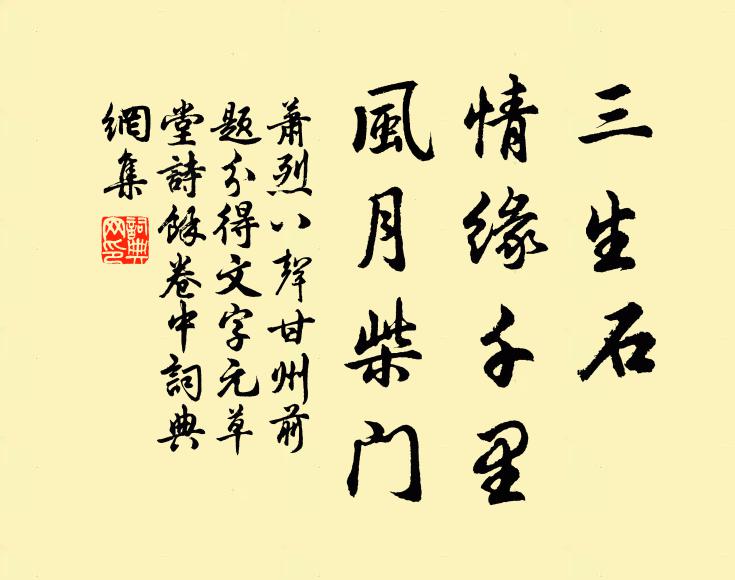 三生石
情缘千里
風月柴门
萧烈八聲甘州前
题分得文字元草
堂詩餘卷中詞典
網集
詞典
网印